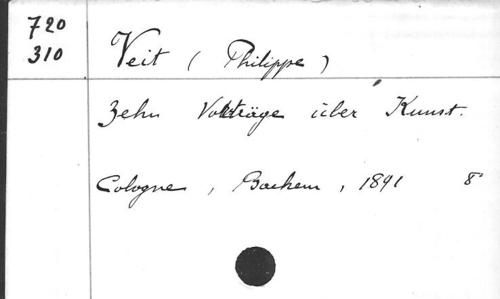 720
310
Veit ( Philippe )
Zehn Vorträge über Kunst.
Cologne , Bachem , 1891 8°